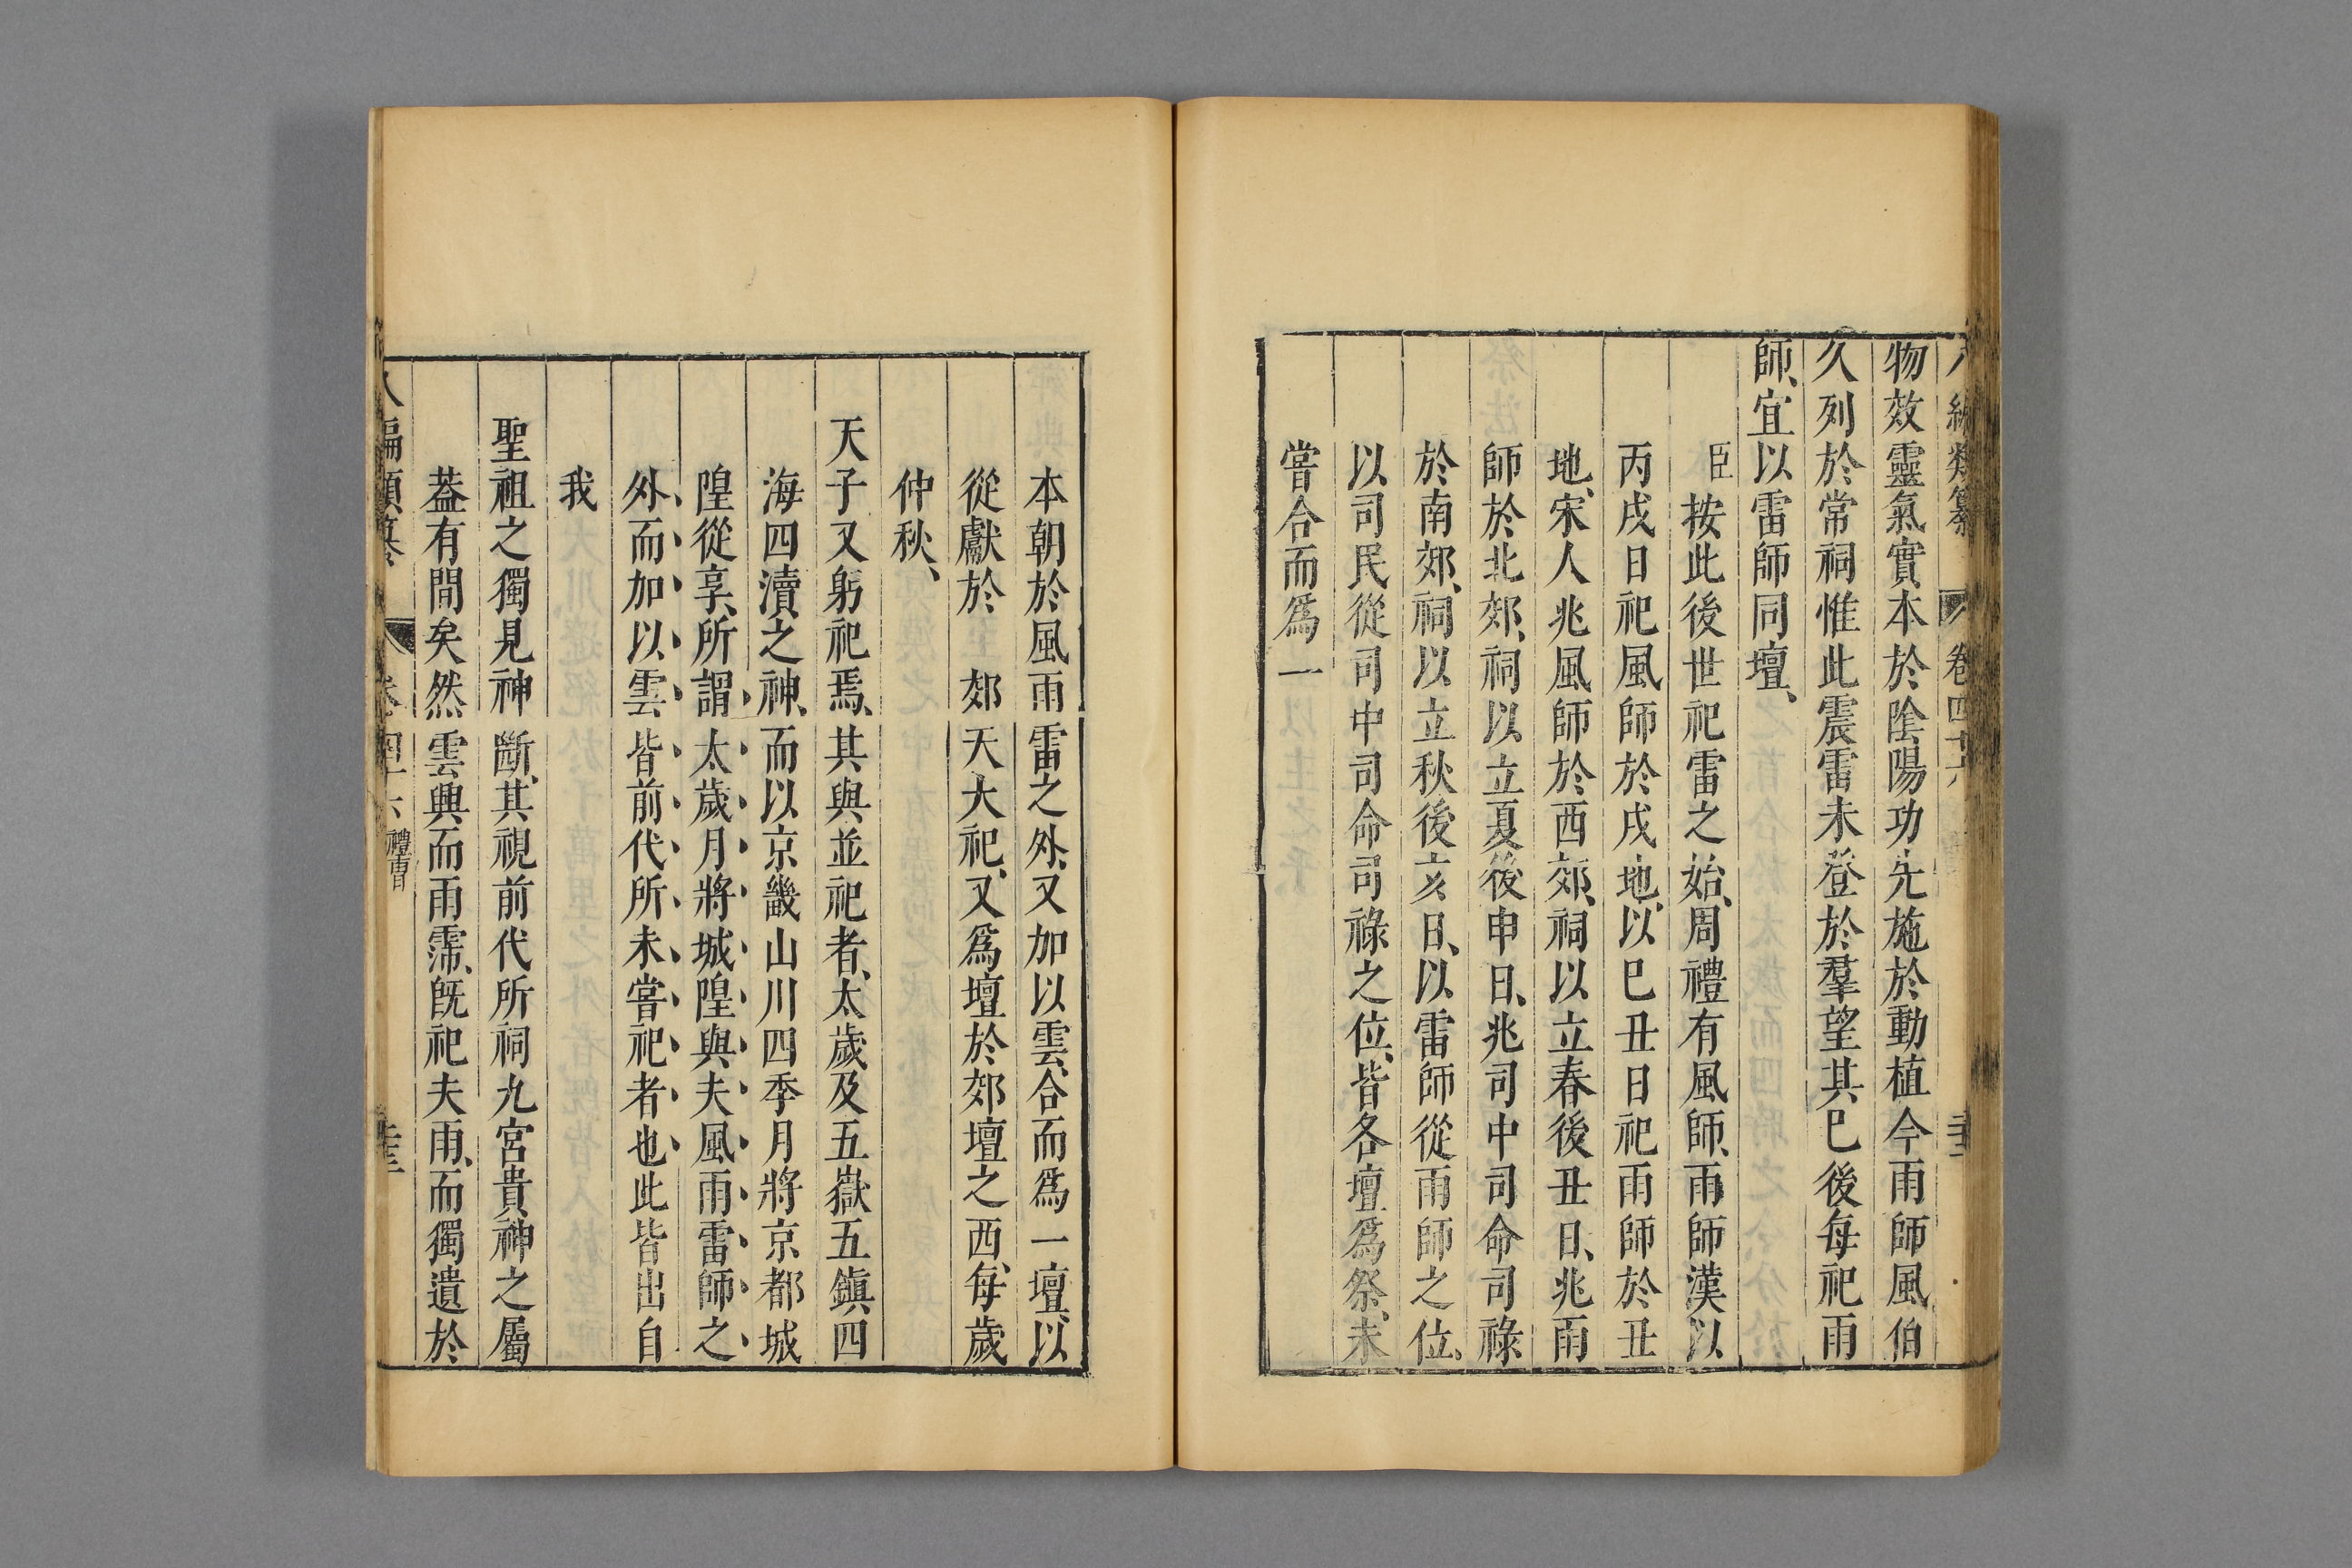 八編類纂 卷四十六
物效靈氣實本於陰陽功先施於動植今雨師風伯
久列於常祠惟此震雷未登於羣望其已後每祀雨
師、宜以雷師同壇、
臣按此後世祀雷之始、周禮有風師、雨師漢以
丙戌日祀風師於戌地、以巳丑日祀雨師於丑
地、宋人兆風師於西郊、祠以立春後丑日、兆雨
師於北郊、祠以立夏後申日、兆司中司命司祿
於南郊、祠以立秋後亥日、以雷師從雨師之位、
以司民從司中司命司祿之位、皆各壇爲祭、未
嘗合而爲一
本朝於風雨雷之外、又加以雲、合而爲一壇、以
從獻於 郊天大祀、又爲壇於郊壇之西、每歲
仲秋、
天子又躬祀焉、其與並祀者、太歲及五嶽五鎭四
海四瀆之神、而以京畿山川四季月將京都城
隍從享、所謂太歲月將城隍與夫風雨雷師之
外、而加以雲皆前代所未嘗祀者也此皆出自
我
聖祖之獨見神斷、其視前代所祠九宮貴神之屬
葢有間矣然雲興而雨霈、旣祀夫雨、而獨遺於
八編類纂 卷四十六 禮曹